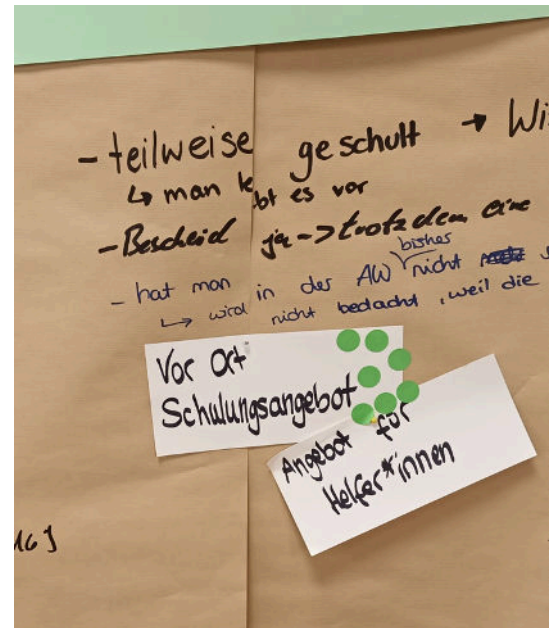 - teilweise geschult → Wi
↳ man lebt es vor
- Bescheid ja -> trotzdem eine
bisher
- hat man in der AW nicht
↳ wird nicht bedacht, weil die
Vor Ort
Schulungsangebot
Angebot für
Helfer*innen
16]